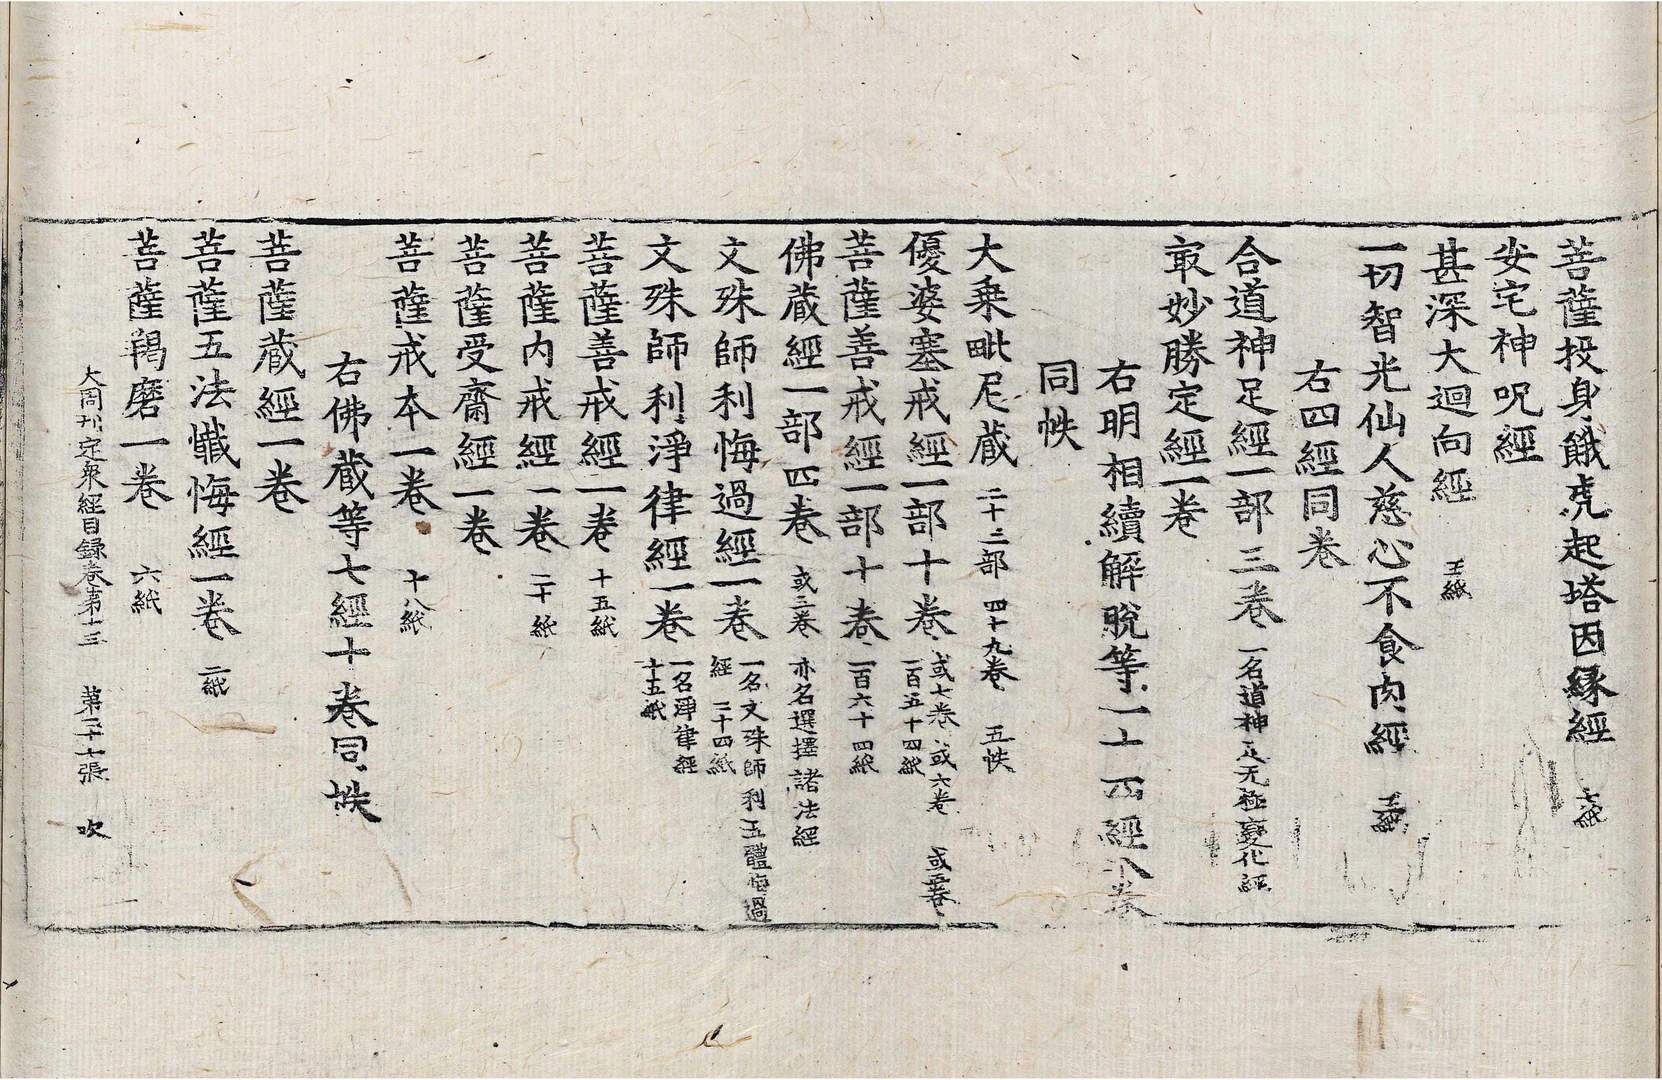 菩薩投身餓虎起塔因緣經 七紙
安宅神呪經
甚深大迴向經 五紙
一切智光仙人慈心不食肉經 三紙
右四經同卷
合道神足經一部三卷 一名道神足无極變化經
㝡妙勝定經一卷
右明相續解脫等一十四經十八卷
同帙
大乘毗尼藏 二十二部 四十九卷 五帙
優婆塞戒經一部十卷 或七卷或六卷 或五卷 一百五十四紙
菩薩善戒經一部十卷 一百六十四紙
佛藏經一部四卷 或三卷 亦名選擇諸法經
文殊師利悔過經一卷 一名文殊師利五體悔過經 二十四紙
文殊師利淨律經一卷 一名淨律經 十五紙
菩薩善戒經一卷 十五紙
菩薩內戒經一卷 二十紙
菩薩受齋經一卷
菩薩戒本一卷 十八紙
右佛藏等七經十卷同帙
菩薩藏經一卷
菩薩五法懺悔經一卷 二紙
菩薩羯磨一卷 六紙
大周刊定衆經目録卷第十三 第二十七張 吹